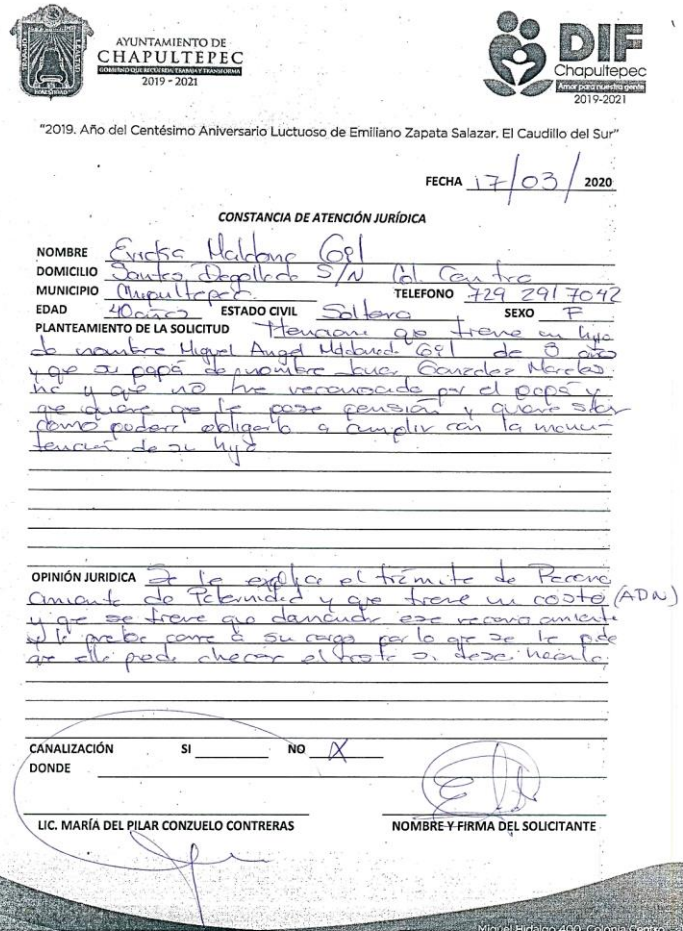 AYUNTAMIENTO DE
CHAPULTEPEC
2019 - 2021
DIF
Chapultepec
Amor para nuestra gente
2019-2021
"2019. Año del Centésimo Aniversario Luctuoso de Emiliano Zapata Salazar. El Caudillo del Sur"
FECHA 17/03/2020
CONSTANCIA DE ATENCIÓN JURÍDICA
NOMBRE Ericka Maldono Gil
DOMICILIO Santos Degollado S/N Col. Centro
MUNICIPIO Chapultepec TELEFONO 729 291 7042
EDAD 40 años ESTADO CIVIL Soltera SEXO F
PLANTEAMIENTO DE LA SOLICITUD Menciona que tiene un hijo
de nombre Miguel Angel Maldonado Gil de 8 años
y que su papá de nombre Gonzalez
y que no fue reconocido por el papá y
que quiere que le pase pensión y quiere
como poder obligarlo a cumplir con la manu-
tención de su hijo
OPINIÓN JURIDICA Se le explica el trámite de Recono
cimiento de Paternidad y que tiene un costo (ADN)
y que se tiene que demandar ese reconocimiento
y la prueba corre a su cargo por lo que se le pide
que ella puede checar el costo si desea hacerla
CANALIZACIÓN SI NO X
DONDE
LIC. MARÍA DEL PILAR CONZUELO CONTRERAS NOMBRE Y FIRMA DEL SOLICITANTE
Miguel Hidalgo 400, Colonia Centro